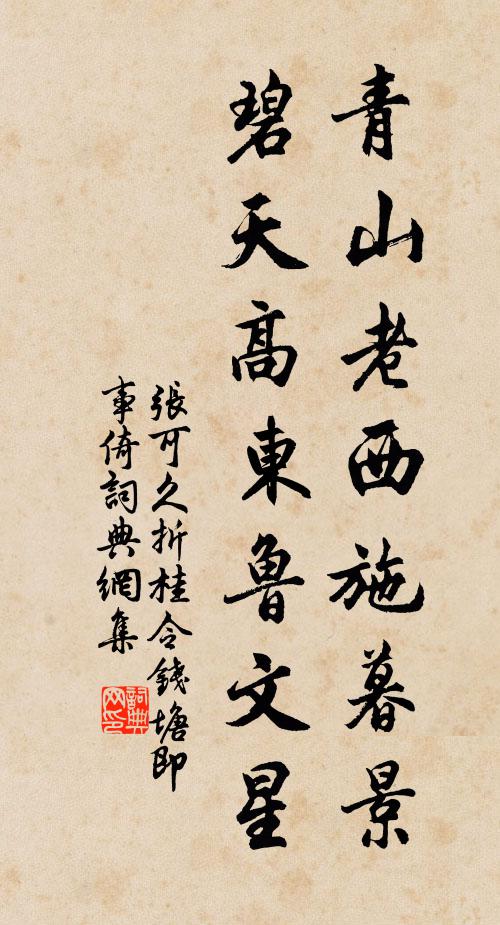 青山老西施暮景
碧天高東魯文星
張可久折桂令錢塘即
事倚詞典網集
詞典
网印